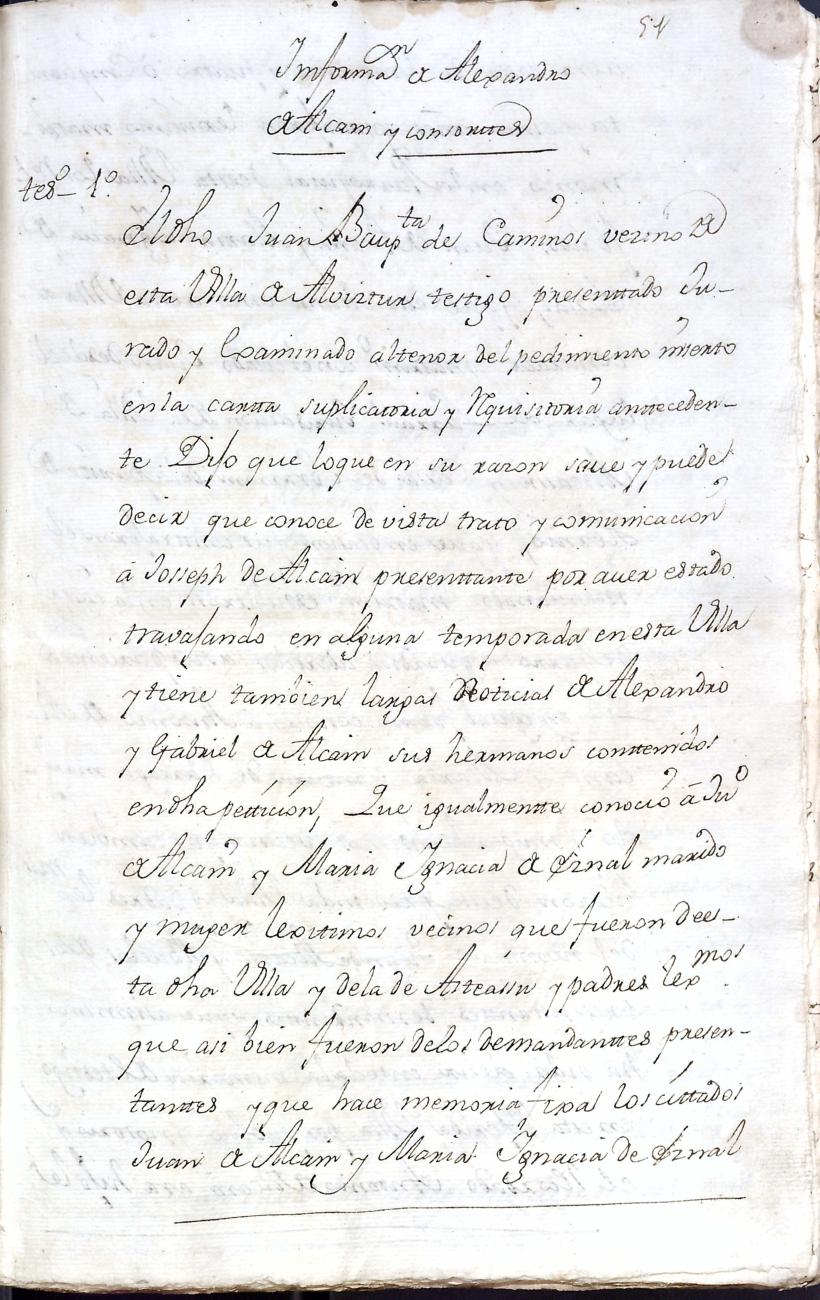 51
Informaon de Alexandro
de Alcain y consorttes
teso- 1o
El dho Juan Baupta de Caminos vezino de
esta Villa de Alviztur testigo presenttado Ju-
rado y Examinado altenor del pedimiento inserto
enla cartta suplicattoria y Rquisitoria anteceden-
te. Dijo que loque en su razon save y puede
decir que conoce de vista trato y comunicacion
á Josseph de Alcain presenttante por auer estado
travajando en alguna temporada enesta Villa
y tiene tambien largas Noticias de Alexandro
y Gabriel de Alcain sus hermanos conttenidos
endha pettición, Que igualmentte conoció á Juo
de Alcain y Maria Ignacia de Iznal marido
y muger lexitimos vecinos que fueron dees-
ta dha Villa y dela de Asteasu y padres lexmos
que asi bien fueron delos demandanttes presen-
tanttes y que hace memoria fixa los cittados
Juan de Alcain y Maria Ignacia de Iznal